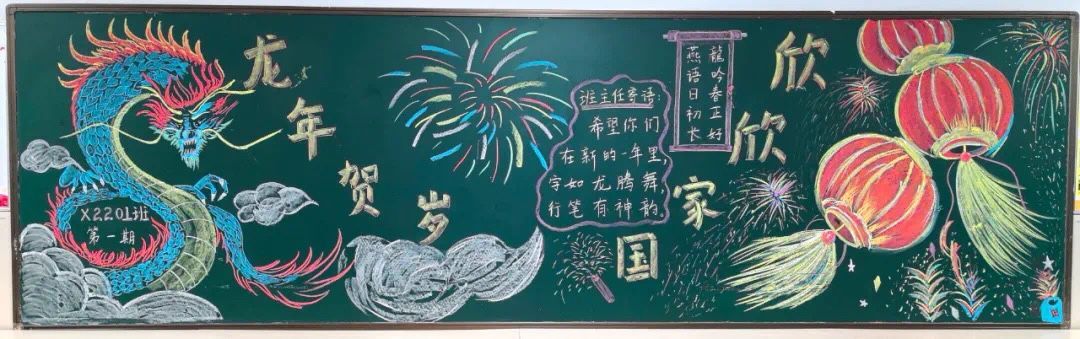 龙年贺岁
X2201班
第一期
班主任寄语：
希望你们
在新的一年里，
字如龙腾舞，
行笔有神韵。
龍吟春正好
燕语日初长
欣欣家国